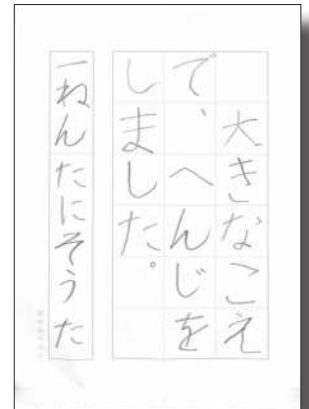 大きなこえ
で、へんじを
しました。
一ねんたにそうた